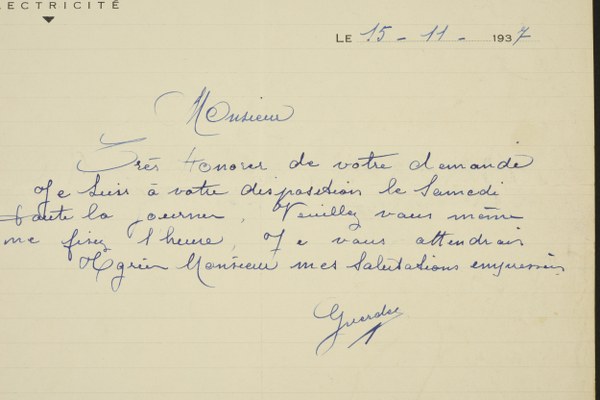 LECTRICITÉ
LE 15 - 11 - 1937
Monsieur
Très Honorer de votre demande
Je suis à votre disposition le Samedi
toute la journer, Veuillez vous même
me fixez l'heure, Je vous attendrais
Agréer Monsieur mes Salutations empressées